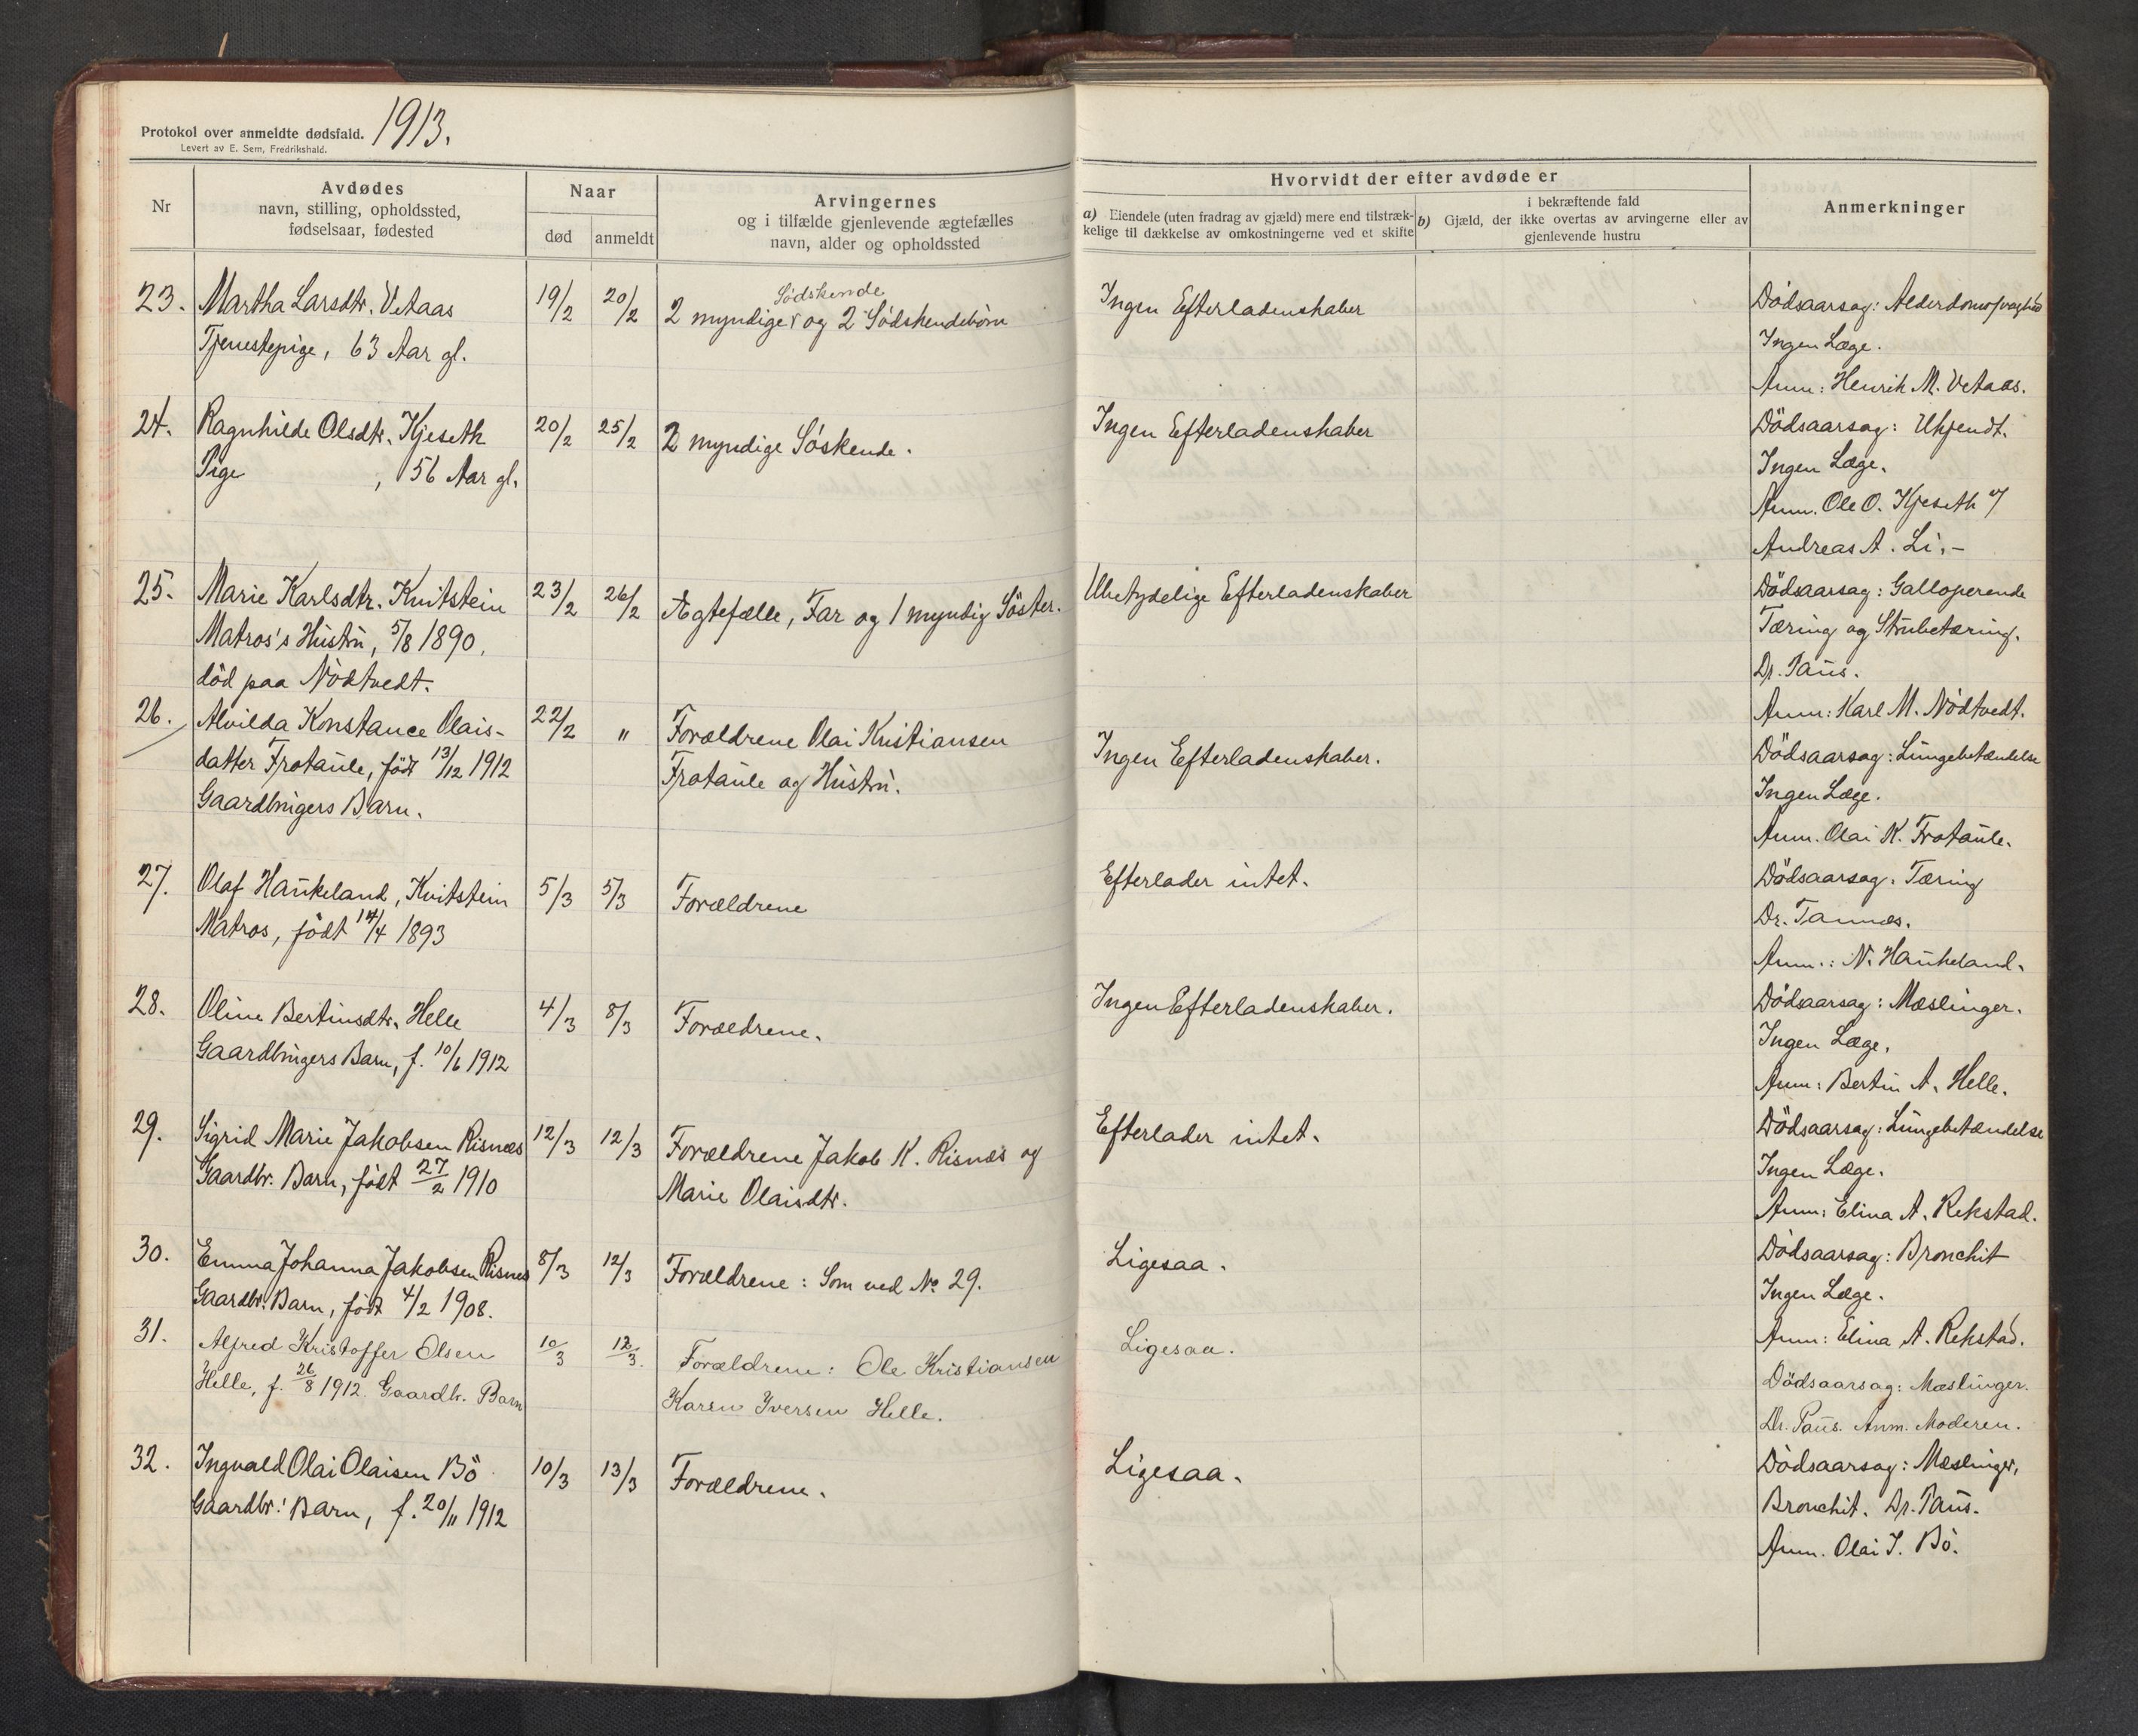 Protokol over anmeldte dødsfald. 1913.
Levert av E. Sem, Fredrikshald.
Nr
Avdødes
navn, stilling, opholdssted,
fødselsaar, fødested
Naar
død
anmeldt
Arvingernes
og i tilfælde gjenlevende ægtefælles
navn, alder og opholdssted
Hvorvidt der efter avdøde er
a) Eiendele (uten fradrag av gjæld) mere end tilstræk-
kelige til dækkelse av omkostningerne ved et skifte
i bekræftende fald
b) Gjæld, der ikke overtas av arvingerne eller av
gjenlevende hustru
Anmerkninger
23. Martha Larsdtr. Vetaas
Tjenestepige, 63 Aar gl.
19/2
20/2
Sødskende
2 myndige og 2 Sødskendebørn
Ingen Efterladenskaber
Dödsaarsag: Alderdomssvaghed
Ingen Læge.
Anm: Henrik M. Vetaas.
24. Ragnhilde Olsdtr. Kjeseth
Pige , 56 Aar gl.
20/2
25/2
2 myndige Söskende.
Ingen Efterladenskaber
Dödsaarsag: Ukjendt.
Ingen Læge.
Anm. Ole O. Kjeseth v/
Andreas A. Li.-
25. Marie Karlsdtr. Kvitstein
Matros's Hustru, 5/8 1890,
död paa Nödtvedt.
23/2
26/2
Ægtefælle, Far og 1 myndig Söster.
Ubetydelige Efterladenskaber
Dödsaarsag: Galloperende
Tæring og Strubetæring.
Dr. Paus.
Anm: Karl M. Nödtvedt.
26. Alvilda Konstance Olais-
datter Frotaule, födt 13/12 1912
Gaardbrugers Barn.
22/2
"
Forældrene Olai Kristiansen
Frotaule og Hustru.
Ingen Efterladenskaber.
Dödsaarsag: Lungebetændelse
Ingen Læge.
Anm. Olai K. Frotaule.
27. Olaf Haukeland, Kvitstein
Matros, födt 14/4 1893
5/3
5/3
Forældrene
Efterlader intet.
Dödsaarsag. Tæring
Dr. Tannæs.
Anm.: N. Haukeland.
28. Oline Bertinsdtr. Helle
Gaardbrugers Barn, f. 10/6 1912
4/3
8/3
Forældrene.
Ingen Efterladenskaber.
Dödsaarsag: Mæslinger.
Ingen Læge.
Anm: Bertin A. Helle.
29. Sigrid Marie Jakobsen Risnæs
Gaardbr. Barn, födt 27/2 1910
12/3
12/3
Forældrene Jakob K. Risnæs og
Marie Olaisdtr.
Efterlader intet.
Dödsaarsag: Lungebetændelse
Ingen Læge.
Anm: Elina A. Rekstad.
30. Emma Johanna Jakobsen Risnes
Gaardbr. Barn, födt 4/2 1908.
8/3
12/3
Forældrene: Som ved No 29.
Ligesaa.
Dödsaarsag: Bronchit
Ingen Læge.
Anm: Elina A. Rekstad.
31. Alfred Kristoffer Olsen
Helle, f. 26/8 1912. Gaardbr. Barn
10/3
12/3.
Forældrene: Ole Kristiansen
Karen Iversen Helle.
Ligesaa.
Dödsaarsag: Mæslinger.
Dr. Paus. Anm. Moderen.
32. Ingvald Olai Olaisen Bö
Gaardbr: Barn, f. 20/11 1912
10/3
13/3
Forældrene.
Ligesaa.
Dödsaarsag: Mæslinger,
Bronchit. Dr. Paus.
Anm. Olai I. Bö.